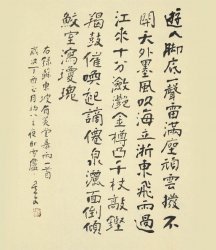 遊人腳底一聲雷滿座頑雲撥不
開天外黑風吹海立浙東飛雨過
江來十分瀲灩金樽凸千杖敲鏗
羯鼓催喚起謫僊泉灑面倒傾
鮫室瀉瓊瑰
右錄蘇東坡有美堂暴雨一首
歲次丁酉